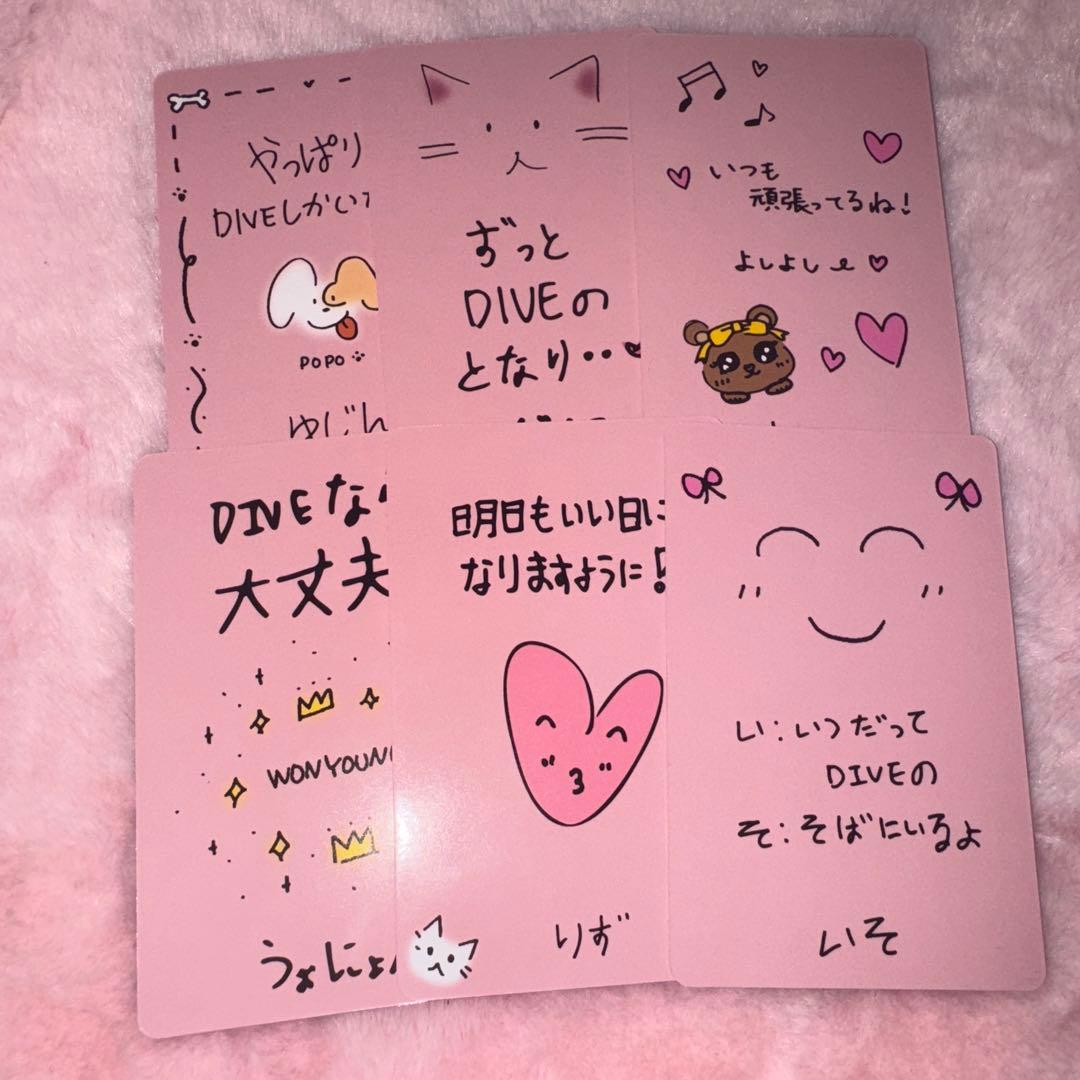 やっぱり
DIVEしかいな
POPO
ゆじん
ずっと
DIVEの
となり・・
いつも
頑張ってるね!
よしよし
DIVEなら
大丈夫
WONYOUNG
うぉにょん
明日もいい日に
なりますように!
りず
い:いつだって
DIVEの
そ:そばにいるよ
いそ